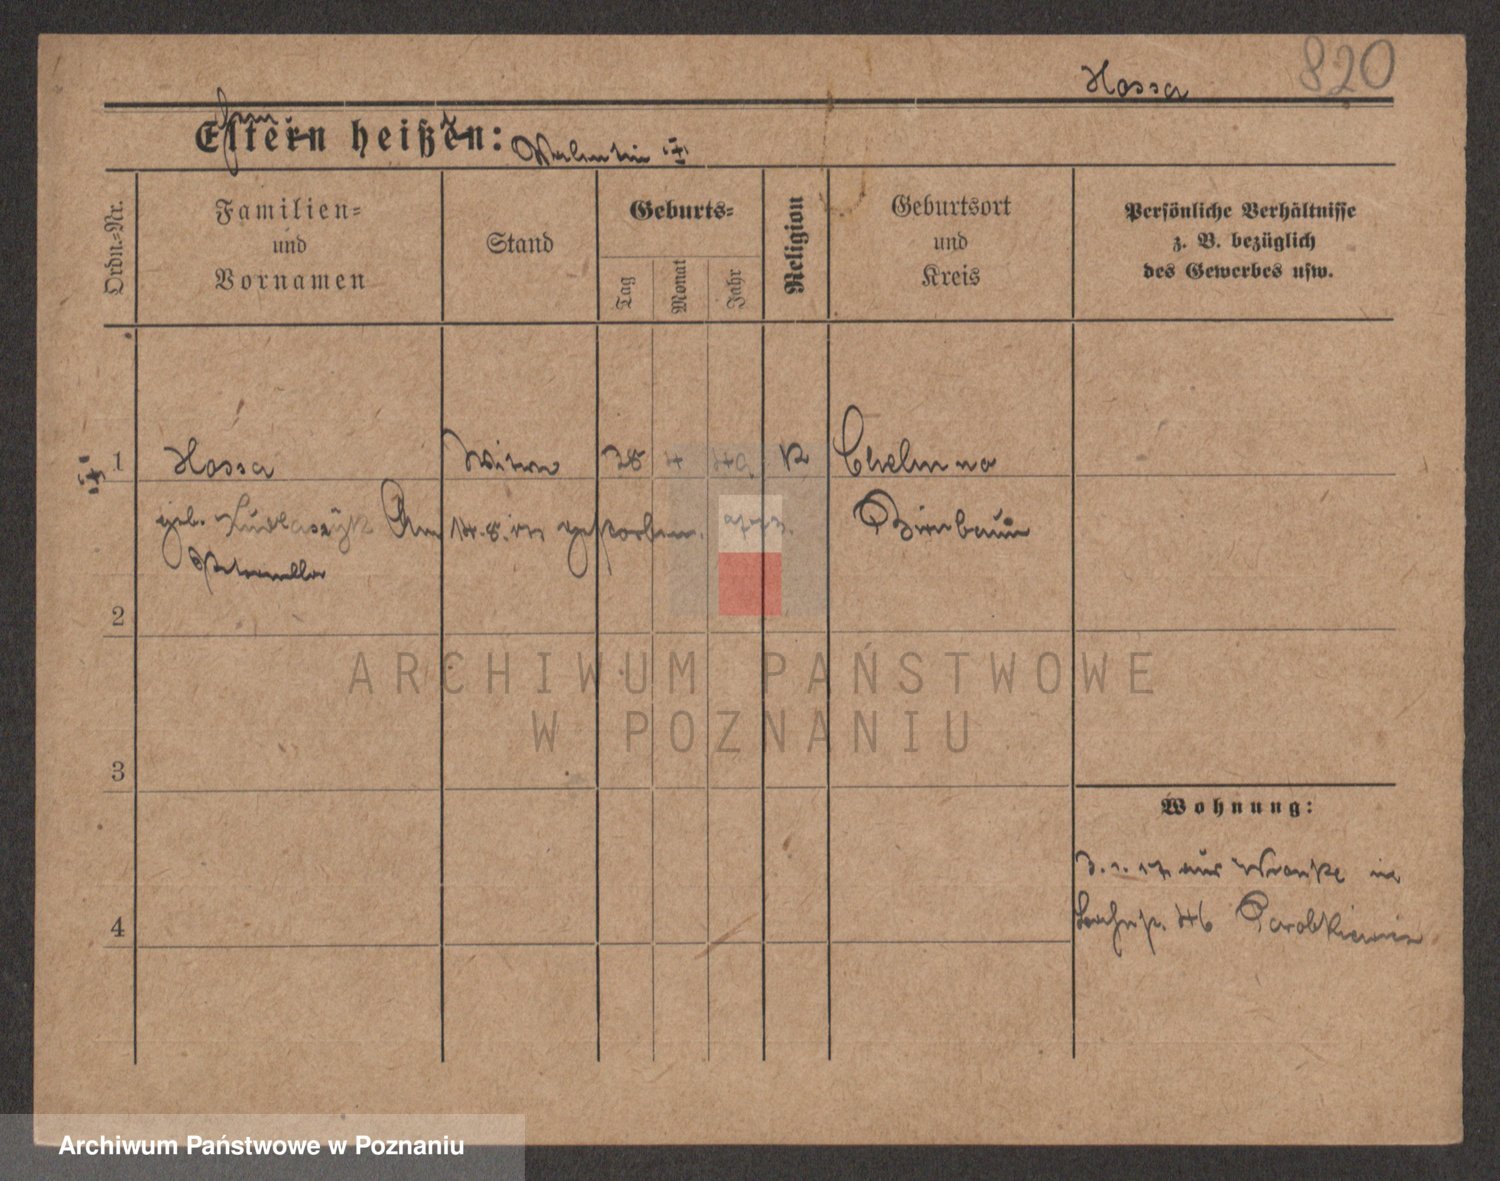 820
Hossa
Eltern heißen: Valentin
Ordn.=Nr.
Familien=
und
Vornamen
Stand
Geburts=
Tag
Monat
Jahr
Religion
Geburtsort
und
Kreis
Persönliche Verhältnisse
z. B. bezüglich
des Gewerbes usw.
1 Hossa Witwe 28 4 K Chelmno
geb. Am gestorben. Birnbaum
Petronella
2
ARCHIWUM PAŃSTWOWE
W POZNANIU
3
Wohnung:
aus Wronke in
4
46
Archiwum Państwowe w Poznaniu